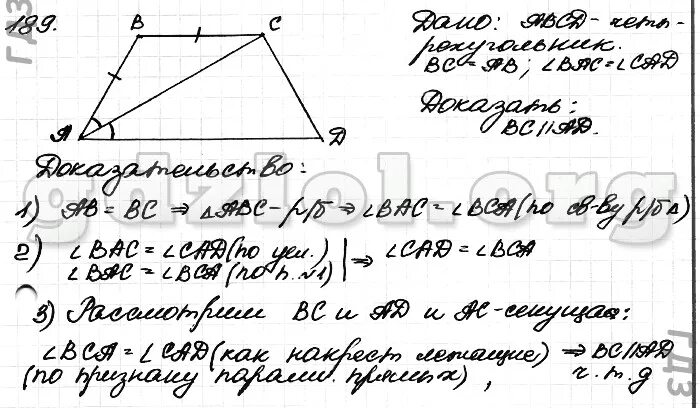 189.
ГДЗ
B
C
A
D
Дано: ABCD - четы-
рехугольник.
BC = AB; ∠BAC = ∠CAD
Доказать:
BC || AD.
Доказательство:
1) AB = BC ⇒ △ABC - р/б ⇒ ∠BAC = ∠BCA (по св-ву р/б △)
2) ∠BAC = ∠CAD (по усл.) | ⇒ ∠CAD = ∠BCA
∠BAC = ∠BCA (по п. №1)
3) Рассмотрим BC и AD и AC - секущая:
∠BCA = ∠CAD (как накрест лежащие) ⇒ BC || AD
(по признаку паралл. прямых), ч.т.д
gdzlol.org
ГДЗ